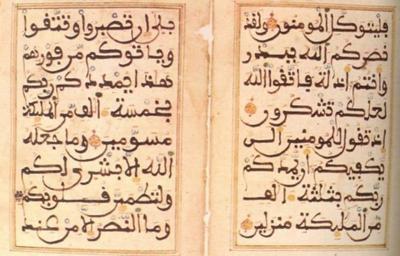 فليتوكل المومنون ولقد
نصركم الله ببدر
وانتم اذلة فاتقوا الله
لعلكم تشكرون
اذ تقول للمومنين الن
يكفيكم ان يمدكم
ربكم بثلثة الف
من المليكة منزلين
بلى ان تصبروا وتتقوا
وياتوكم من فورهم
هذا يمددكم ربكم
بخمسة الف من المليكة
مسومين وما جعله
الله الا بشرى لكم
ولتطمين قلوبكم
وما النصر الا من عند